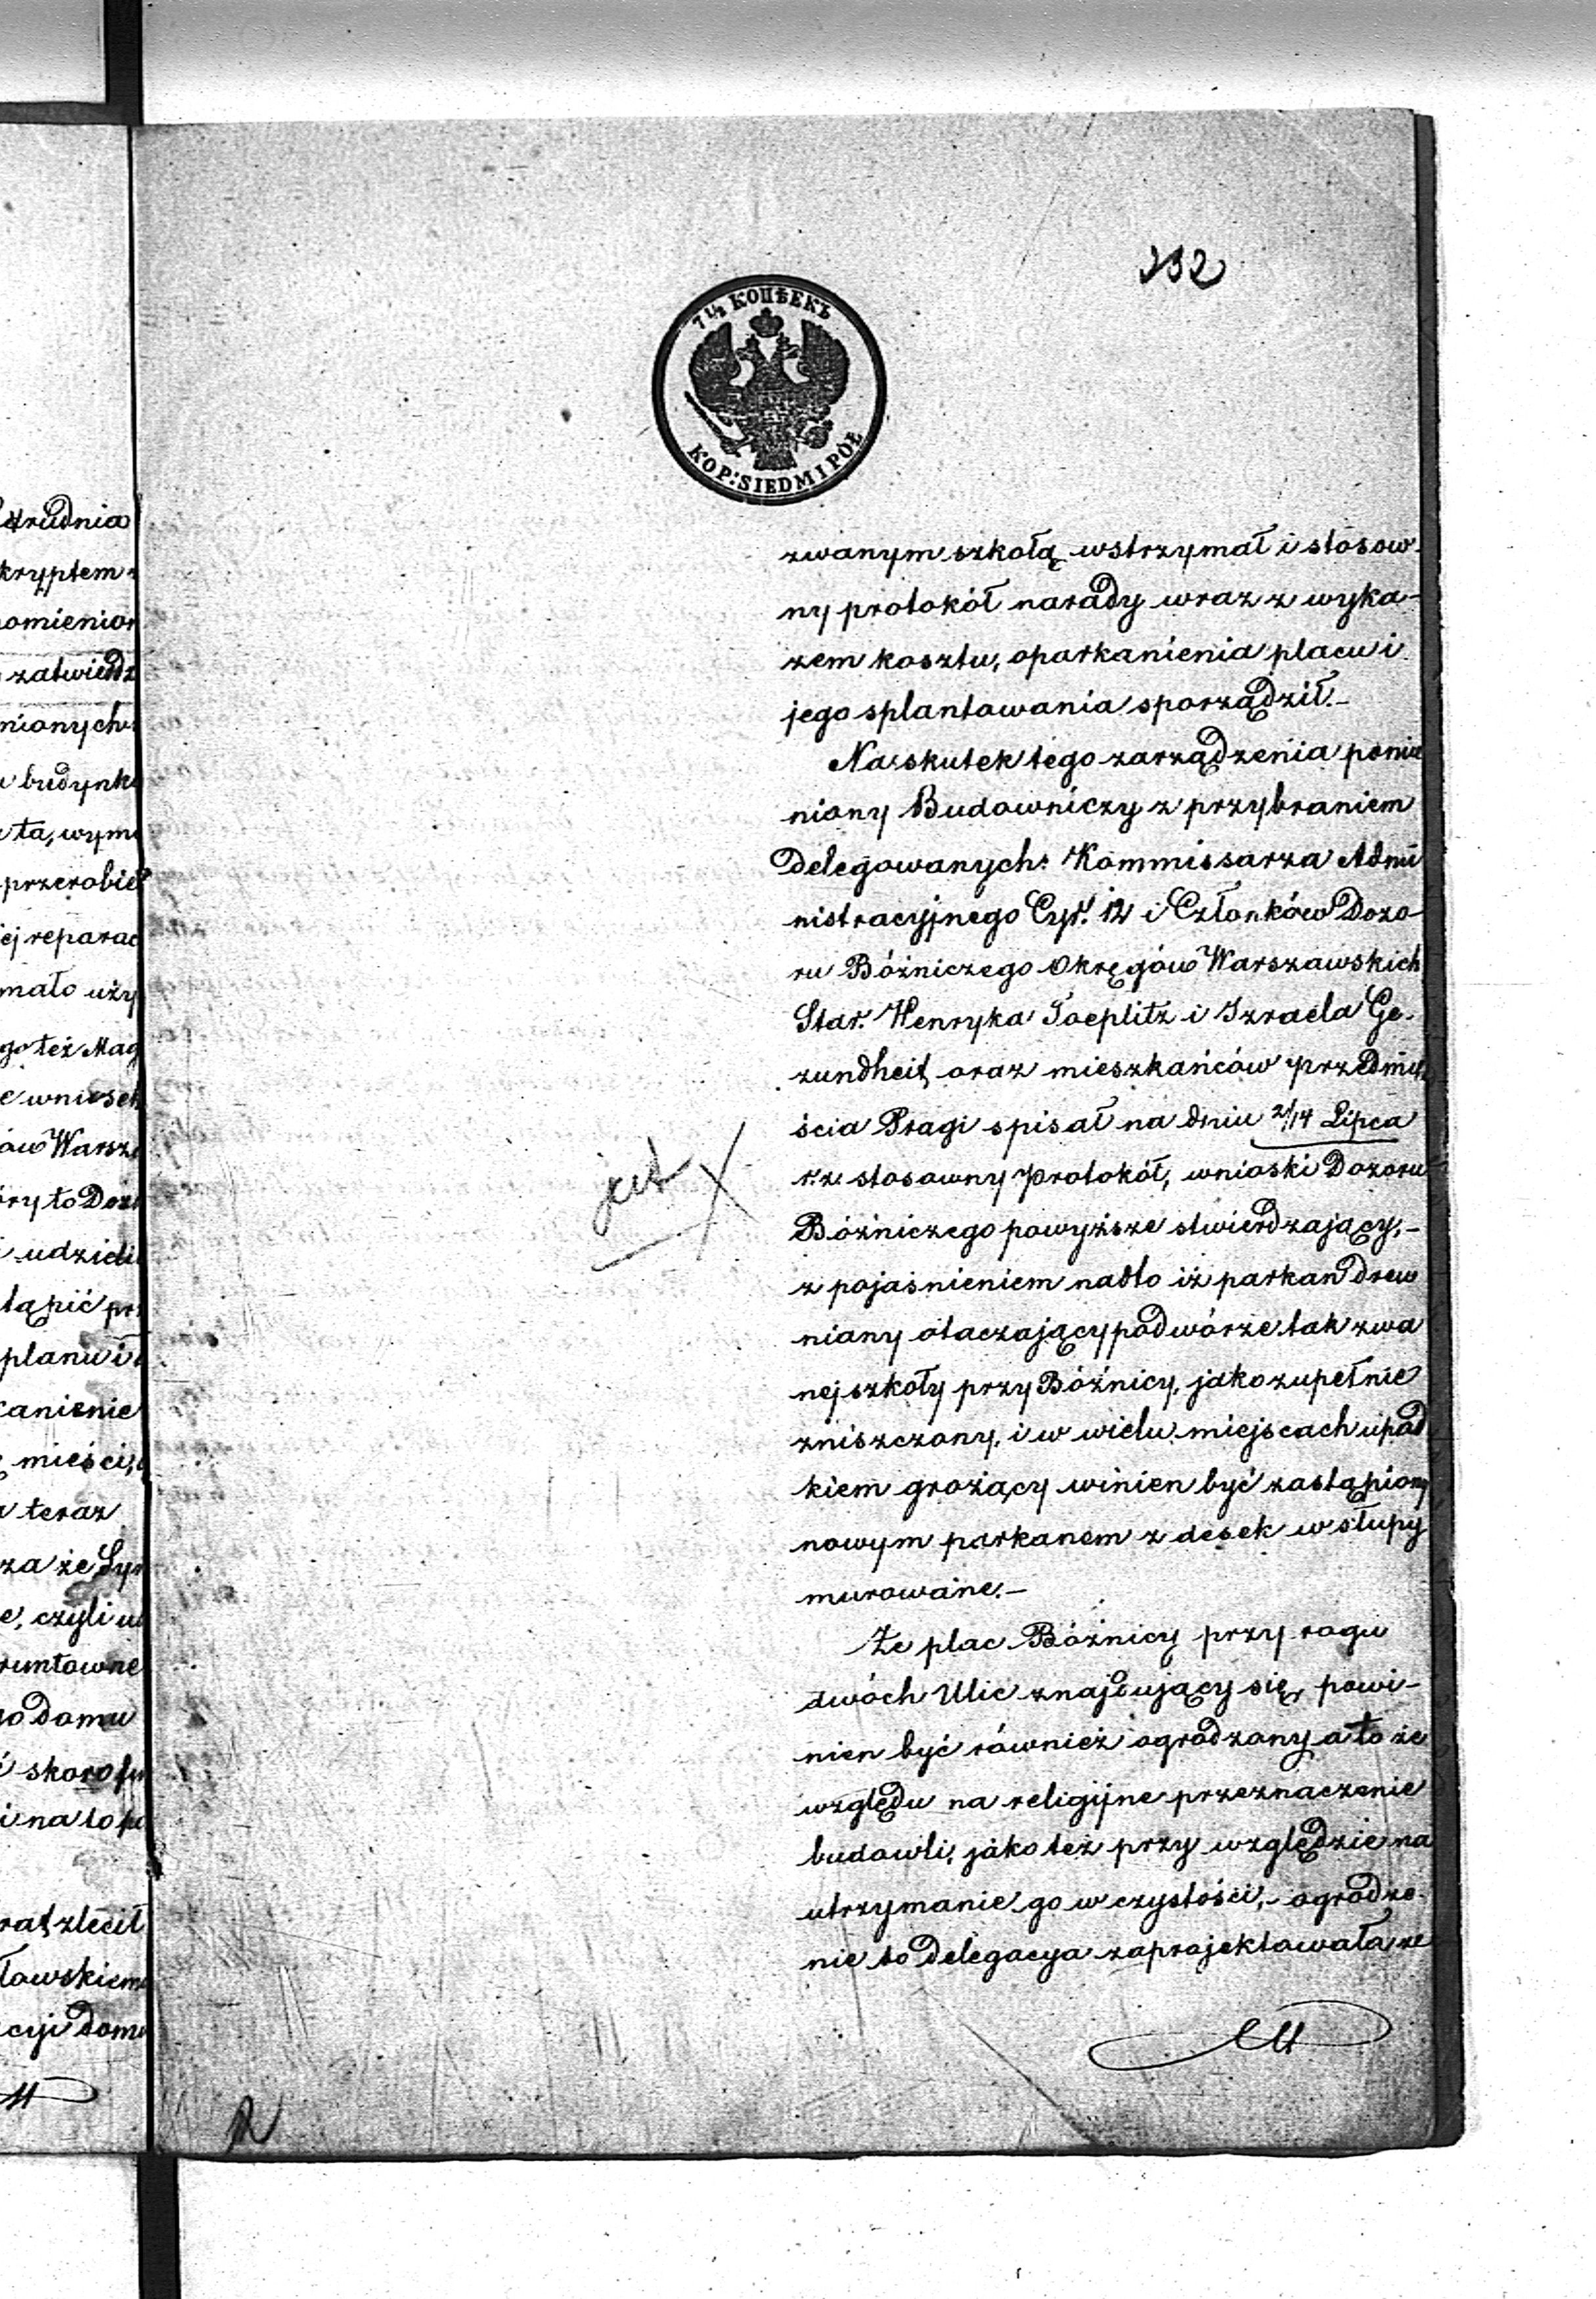 232
7½ КОПѢЕКЪ
KOP: SIEDM I PÓŁ
zwanym szkołą wstrzymał i stosow-
ny protokół narady wraz z wyka-
zem kosztu, oparkanienia placu i
jego splantowania sporządził.-
Na skutek tego zarządzenia pomie
niony Budowniczy z przybraniem
Delegowanych: Kommissarza Admi
nistracyjnego Cyr. 12 i Członków Dozo-
ru Bóżniczego Okręgów Warszawskich
Star. Henryka Toeplitz i Izraela Ge-
zundheit, oraz mieszkańców przedmie
ścia Pragi spisał na dniu 2/14 Lipca
r.z. stosowny protokół, wnioski Dozoru
Bóżniczego powyższe stwierdzający,-
z pojaśnieniem nadto iż parkan drew
niany otaczający podwórze tak zwa
nej szkoły przy Bóźnicy, jako zupełnie
zniszczony, i w wielu miejscach upad
kiem grożący winien być zastąpiony
nowym parkanem z desek w słupy
murowane.-
Że plac Bóżnicy przy rogu
dwóch Ulic znajdujący się, powi-
nien być również ogrodzony a to ze
względu na religijne przeznaczenie
budowli, jako też przy względzie na
utrzymanie go w czystości,- ogrodze-
nie to delegacya zaprojektowała ze
już X
grudnia
kryptem
omienion
zatwierdz
nionych
budynk
ta, wym
przerobie
ej reparac
mało uży
go też Mag
e wniosek
ów Warsz
ry to Doz
udzieli
tąpić prz
planu i
kanienie
mieści,
teraz
za że Syn
e, czyli u
runtowne
o domu
skoro fu
i na to po
rat zlecił
towskiem
cyi dom